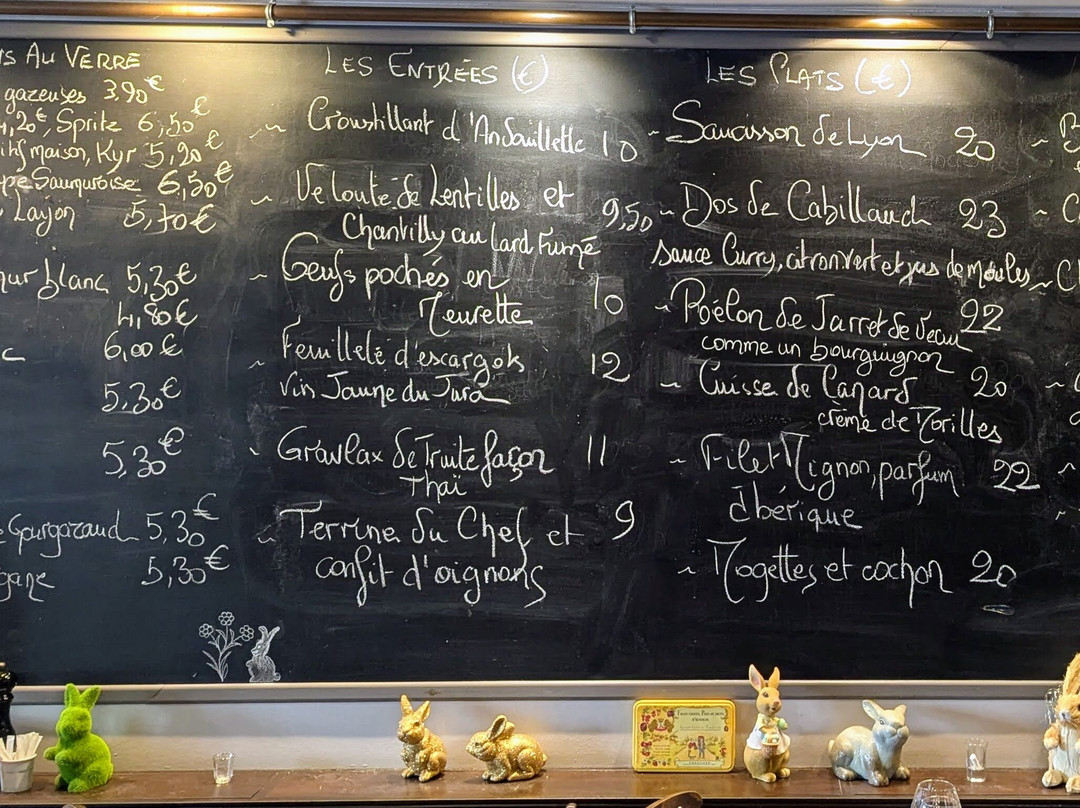 s Au Verre
gazeuses 3,90€
4,20€, Spritz 6,50€
maison, Kyr 5,20€
pe Saumuroise 6,50€
Layon 5,70€
mur blanc 5,30€
4,80€
c 6,00€
5,30€
5,30€
Gourgazaud 5,30€
gane 5,30€
Les Entrées (€)
~ Croustillant d'Andouillette 10
~ Velouté de Lentilles et 9,50
Chantilly au Lard Fumé
~ Oeufs pochés en 10
Meurette
~ Feuilleté d'escargots 12
vin Jaune du Jura
~ Gravlax de Truite façon 11
Thaï
~ Terrine du Chef et 9
confit d'oignons
Les Plats (€)
~ Saucisson de Lyon 20
~ Dos de Cabillaud 23
sauce Curry, citron vert et jus de moules
~ Poêlon de Jarret de Veau 22
comme un bourguignon
~ Cuisse de Canard 20
crème de Morilles
~ Filet Mignon, parfum 22
d'bérique
~ Mogettes et cochon 20